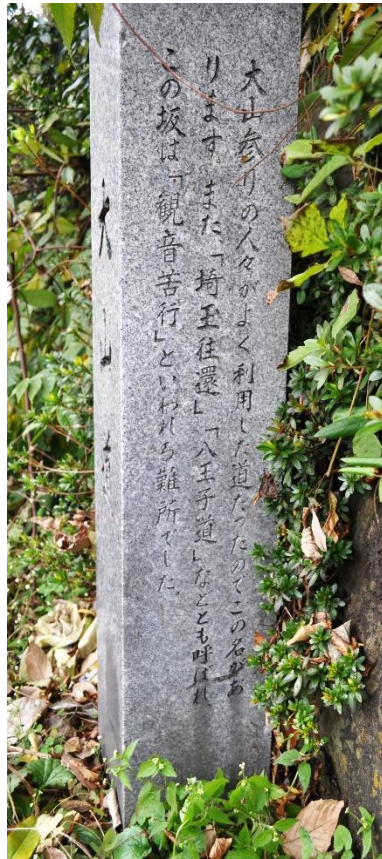 大山参りの人々がよく利用した道だったのでこの名があ
ります。また、「埼玉往還」「八王子道」などとも呼ばれ
この坂は「観音苦行」といわれる難所でした。
大山道